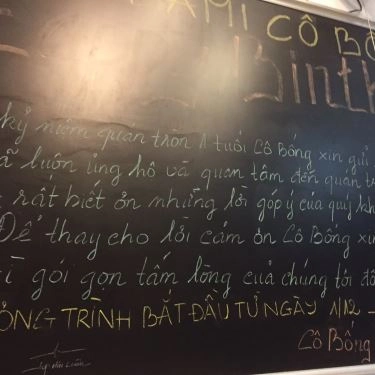 BÁMÌ CÔ BỐ
Birth
kỷ niệm quán tròn 1 tuổi Cô Bống xin gửi
luôn ủng hộ và quan tâm đến quán
rất biết ơn những lời góp ý của quý
Để thay cho lời cảm ơn Cô Bống xin
gói gọn tấm lòng của chúng tôi
TRÌNH BẮT ĐẦU TỪ NGÀY 1/12 -
Cô Bống